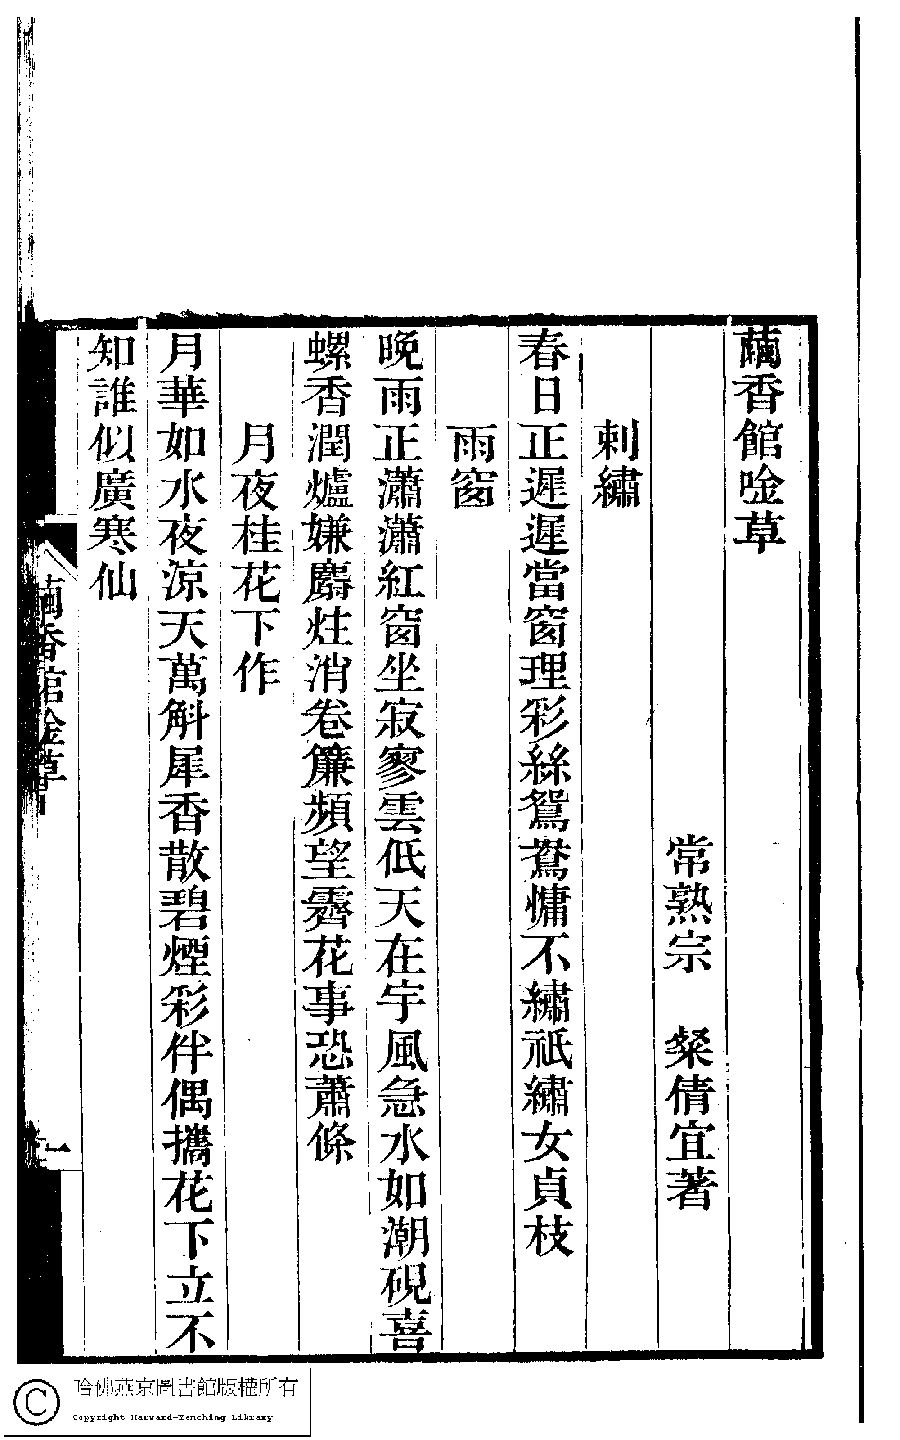 繭香館唫草
常熟宗　粲倩宜著
刺繡
春日正遲遲當窗理彩絲鴛鴦慵不繡祇繡女貞枝
雨窗
晚雨正瀟瀟紅窗坐寂寥雲低天在宇風急水如潮硯喜
螺香潤爐嫌麝炷消卷簾頻望霽花事恐蕭條
月夜桂花下作
月華如水夜涼天萬斛犀香散碧煙彩伴偶攜花下立不
知誰似廣寒仙
繭香館唫草
一
哈佛燕京圖書館版權所有
Copyright Harvard-Yenching Library